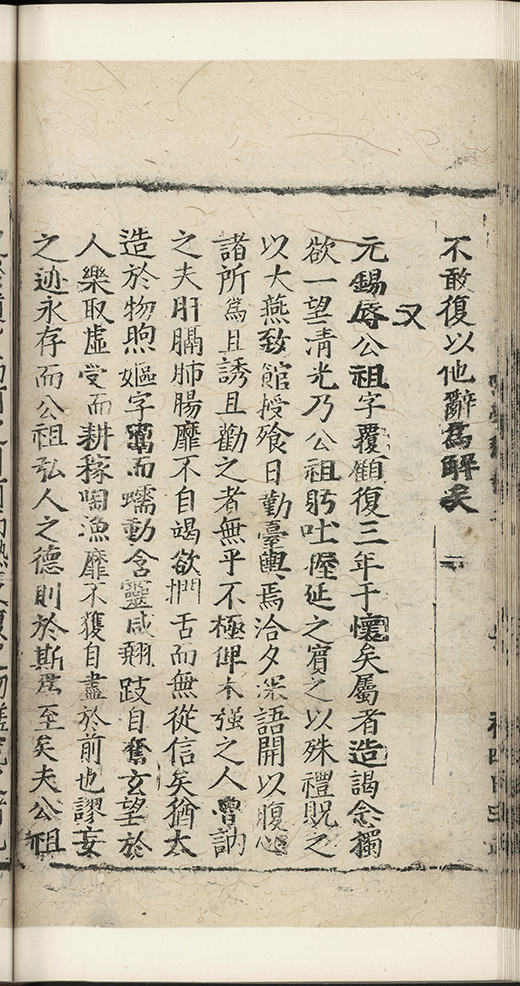 不敢復以他辭爲解矣
又
元錫辱公祖字覆顧復三年于懷矣屬者造謁念獨
欲一望清光乃公祖肹吐握延之賓之以殊禮貺之
以大燕致館授飱日勤臺輿焉洽夕深語開以腹心
諸所爲且誘且勸之者無乎不極俾木强之人曾訥
之夫肝膈肺腸靡不自竭欲捫舌而無從信矣猶太
造於物煦嫗字鬻而蠕動含靈咸翹跂自奮玄望於
人樂取虛受而耕稼陶漁靡不獲自盡於前也謬妄
之迹永存而公祖弘人之德則於斯爲至矣夫公祖